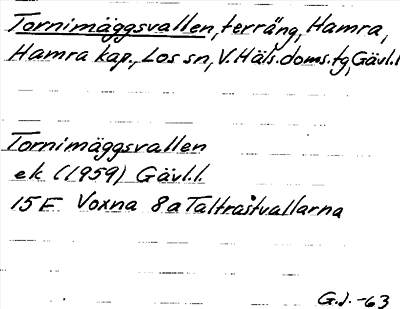 Tornimäggsvallen, terräng, Hamra,
Hamra kap., Los sn, V. Häls. doms. tg, Gävl. l.
Tornimäggsvallen
ek (1959) Gävl. l.
15 F Voxna 8a Taltrastvallarna
G. J. -63